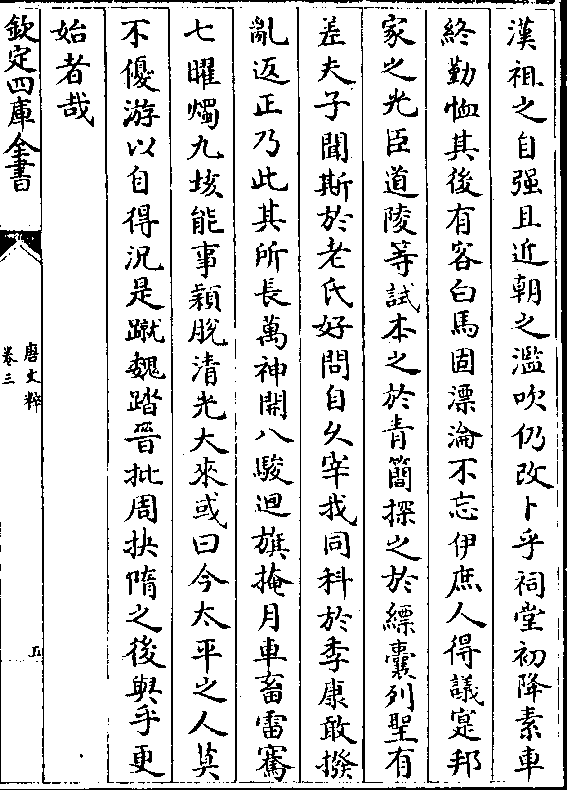 漢祖之自强且近朝之濫吹仍改卜乎祠堂初降素車
終勤恤其後有客白馬固漂淪不忘伊庶人得議寔邦
家之光臣道陵等試本之於青簡探之於縹囊列聖有
差夫子聞斯於老氏好問自久宰我同科於季康敢撥
亂返正乃此其所長萬神開八駿迴旗掩月車畜雷騫
七曜燭九垓能事穎脫清光大來或曰今太平之人莫
不優游以自得況是蹴魏踏晉批周抉隋之後與乎更
始者哉
欽定四庫全書
唐文粹
卷三
五